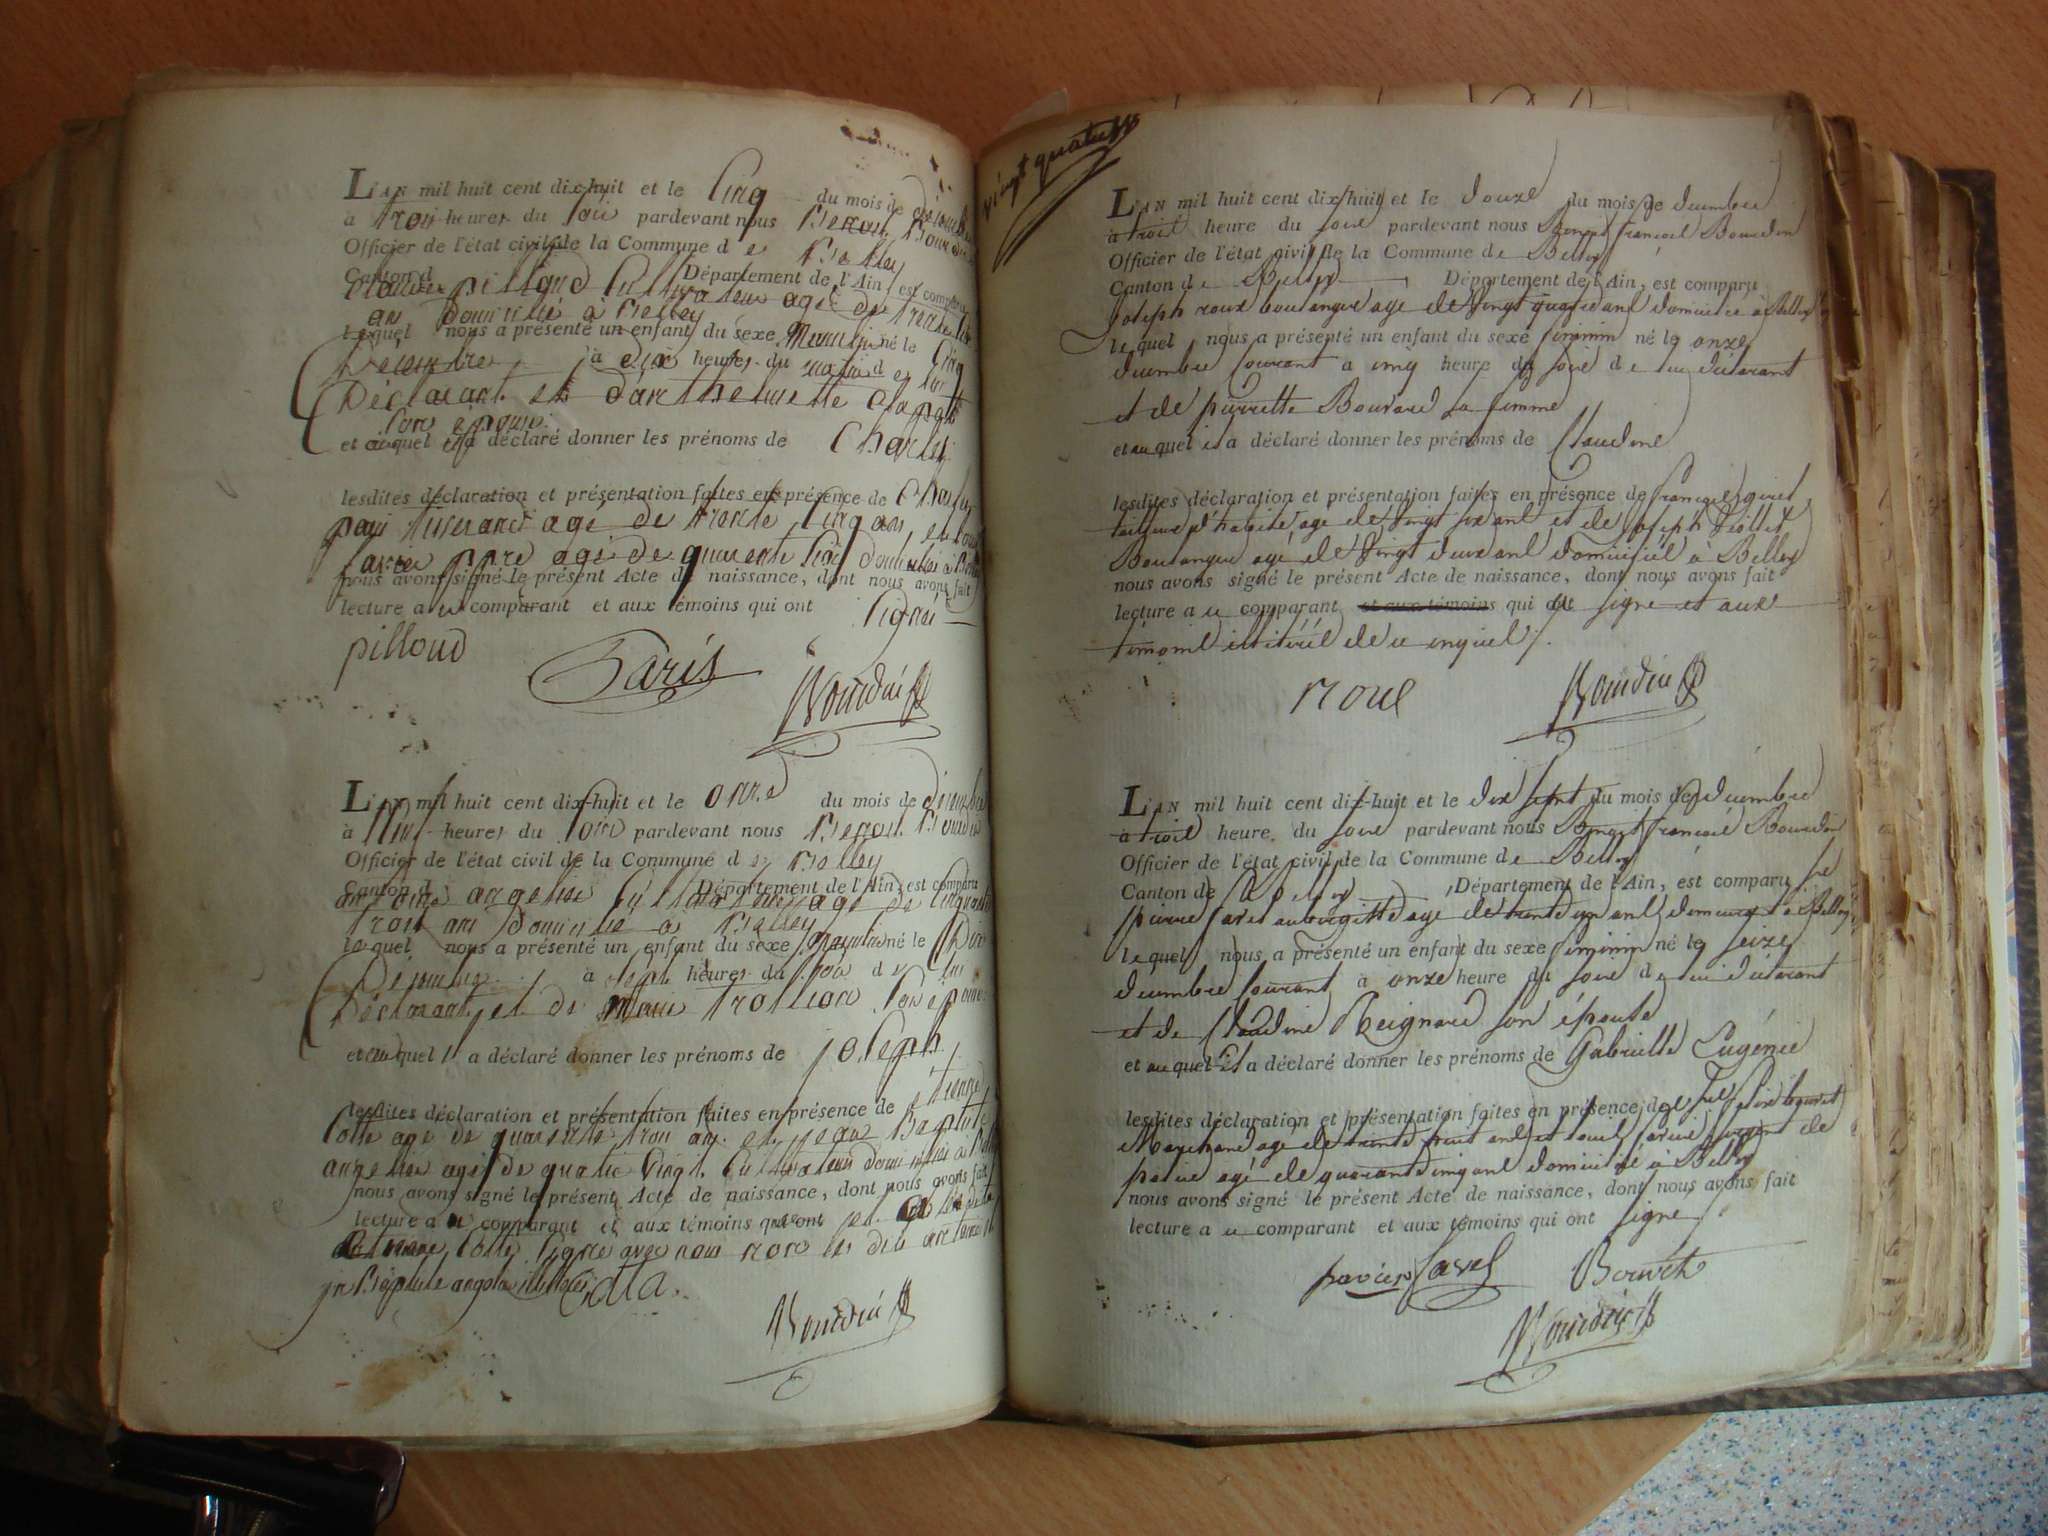 L'AN mil huit cent dix-huit et le Cinq du mois de décembre
à trois heures du soir pardevant nous Benoit Bourdin
Officier de l'état civil de la Commune de Belley
Canton d Département de l'Ain, est comparu
pilloud Cultivateur agé de trente
an domicilié à Belley
lequel nous a présenté un enfant du sexe Masculin né le Cinq
Décembre à dix heures du matin de lui
Déclarant et d'anthelmette
son épouse
et auquel il a déclaré donner les prénoms de Charles
lesdites déclaration et présentation faites en présence de Charles
paris tisserand agé de trente Cinq ans et
pere agé de quarante Cinq domiciliés à Belley
nous avons signé le présent Acte de naissance, dont nous avons fait
lecture au comparant et aux témoins qui ont signé
pilloud Paris Bourdin
L'AN mil huit cent dix-huit et le onze du mois de décembre
à Cinq heures du soir pardevant nous Benoit Bourdin
Officier de l'état civil de la Commune de Belley
Canton d Département de l'Ain, est comparu
antoine angelier Cultivateur agé de Cinquante
trois ans domicilié à Belley
lequel nous a présenté un enfant du sexe Masculin né le
Décembre à sept heures du de lui
Déclarant et de Marie trollion son épouse
et auquel il a déclaré donner les prénoms de joseph
lesdites déclaration et présentation faites en présence de étienne
Cotte agé de quarante trois ans et jean Baptiste
angelier agé de quatre Vingt Cultivateurs domiciliés à Belley
nous avons signé le présent Acte de naissance, dont nous avons fait
lecture au comparant et aux témoins qui ont et
étienne Cotte signé avec nous non
jn Baptiste angelier Cotta.
Bourdin
vingt quatre
L'AN mil huit cent dix-huit et le douze du mois de decembre
à trois heure du soir pardevant nous Benoit françois Bourdin
Officier de l'état civil de la Commune de Belley
Canton de Belley Département de l'Ain, est comparu
Joseph roux boulanger age de Vingt quatre ans domicilie à Belley
lequel nous a présenté un enfant du sexe feminin né le onze
decembre Courant à cinq heure du soir de lui déclarant
et de pierrette Bouvard sa femme
et auquel il a déclaré donner les prénoms de Claudine
lesdites déclaration et présentation faites en présence de françois
tailleur d'habits age de Vingt six ans et de Joseph
Boulanger agé de Vingt deux ans domiciliés à Belley
nous avons signé le présent Acte de naissance, dont nous avons fait
lecture au comparant et aux témoins qui a signe et aux
témoins de ce enquis
roux Bourdin
L'AN mil huit cent dix-huit et le dix sept du mois de decembre
à trois heure du soir pardevant nous Benoit françois Bourdin
Officier de l'état civil de la Commune de Belley
Canton de Belley Département de l'Ain, est comparu
pierre aubergiste age de trente un ans domicilié à Belley
lequel nous a présenté un enfant du sexe feminin né le seize
decembre Courant à onze heure du soir de lui déclarant
et de Claudine Reignard son épouse
et auquel il a déclaré donner les prénoms de Gabrielle Eugénie
lesdites déclaration et présentation faites en présence de
Marchand age de trente huit ans et Louis Sergent de
police agé de quarante cinq ans domicilié à Belley
nous avons signé le présent Acte de naissance, dont nous avons fait
lecture au comparant et aux témoins qui ont signe
Bouvet
Bourdin